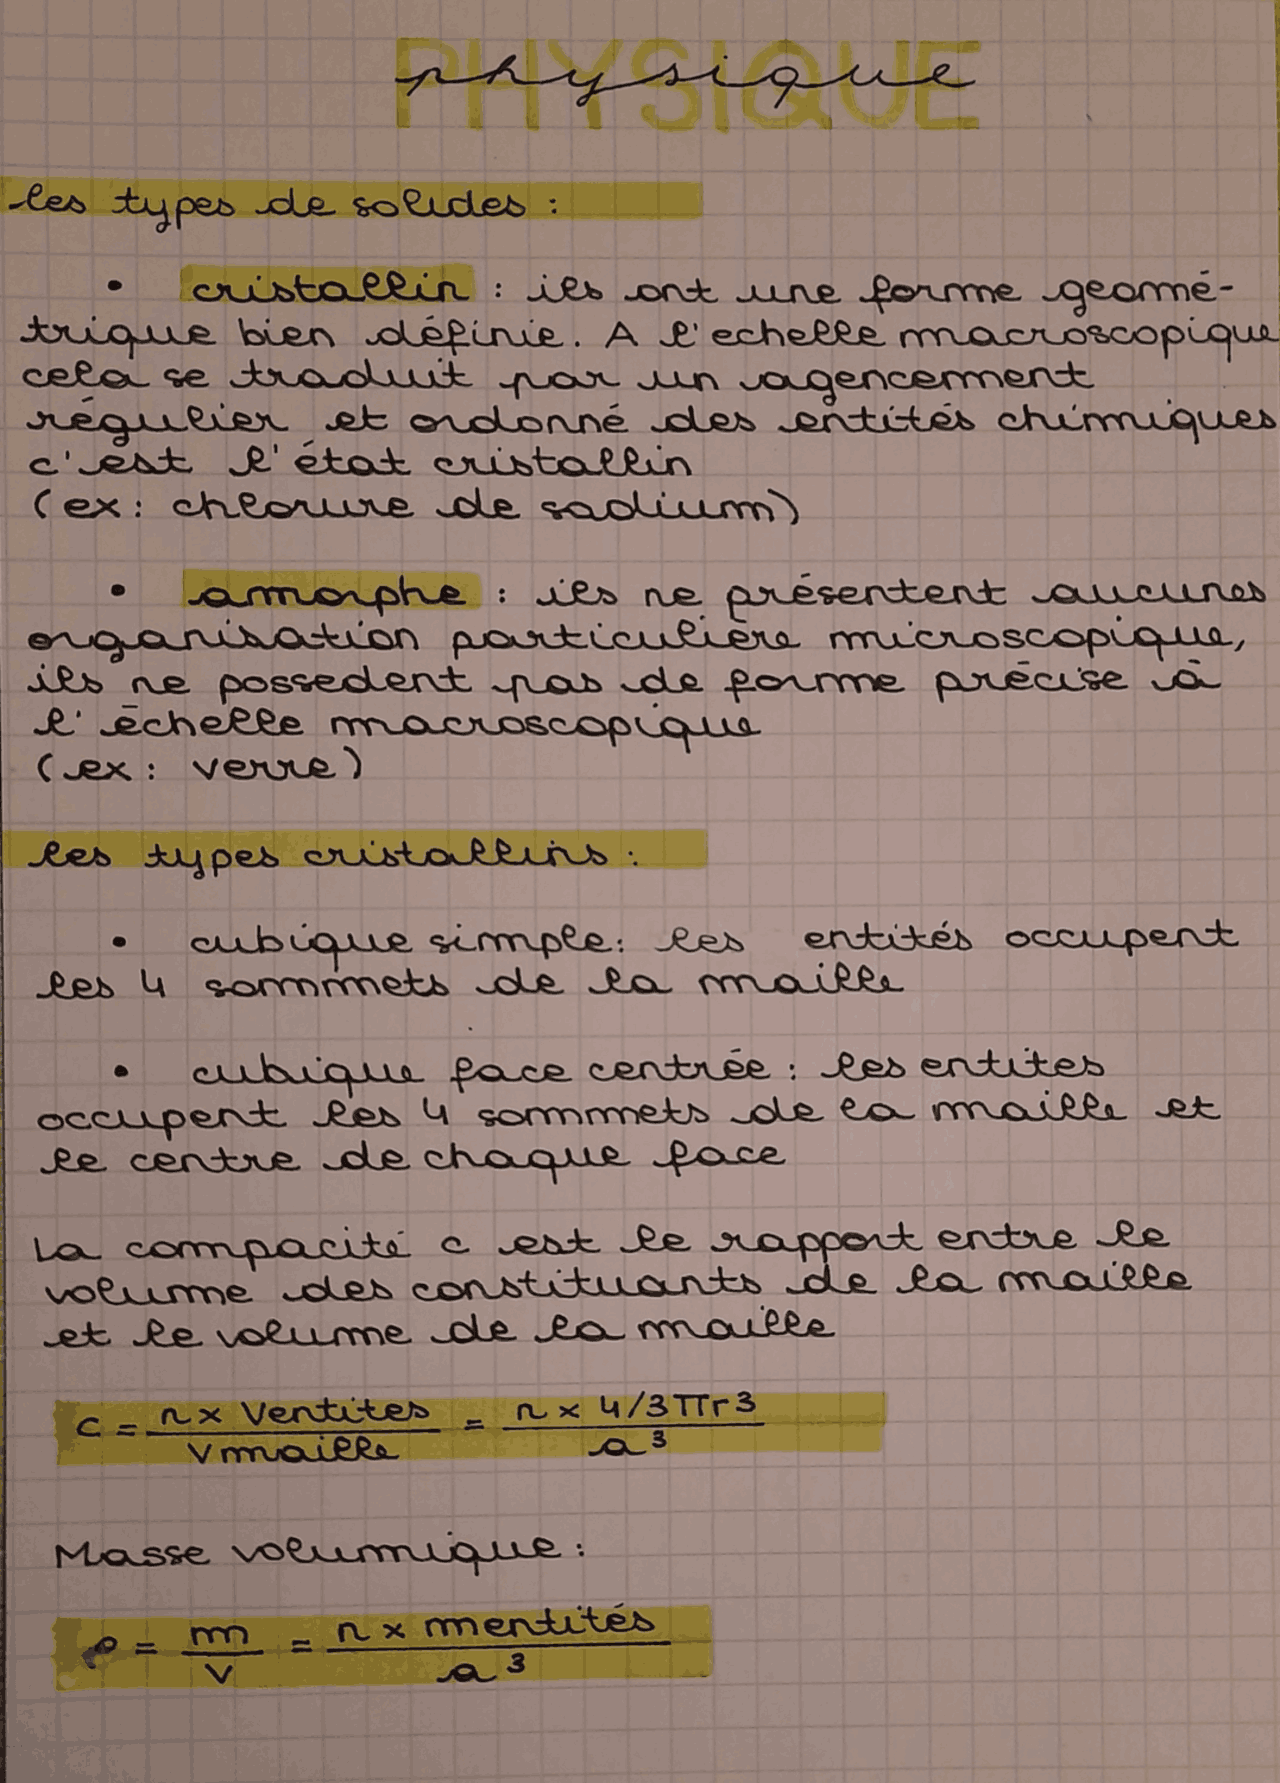 PHYSIQUE
physique
les types de solides :
• cristallin : ils ont une forme geomé-
trique bien définie. A l'echelle macroscopique
cela se traduit par un agencement
régulier et ordonné des entités chimiques
c'est l'état cristallin
(ex: chlorure de sodium)
• amorphe : ils ne présentent aucunes
organisation particulière microscopique,
ils ne possedent pas de forme précise à
l'échelle macroscopique
(ex: verre)
les types cristallins :
• cubique simple: les entités occupent
les 4 sommets de la maille
• cubique face centrée : les entites
occupent les 4 sommets de la maille et
le centre de chaque face
La compacité c est le rapport entre le
volume des constituants de la maille
et le volume de la maille
c = n x Ventites / Vmaille = n x 4/3 πr3 / a³
Masse volumique :
ρ = m / V = n x mentités / a³